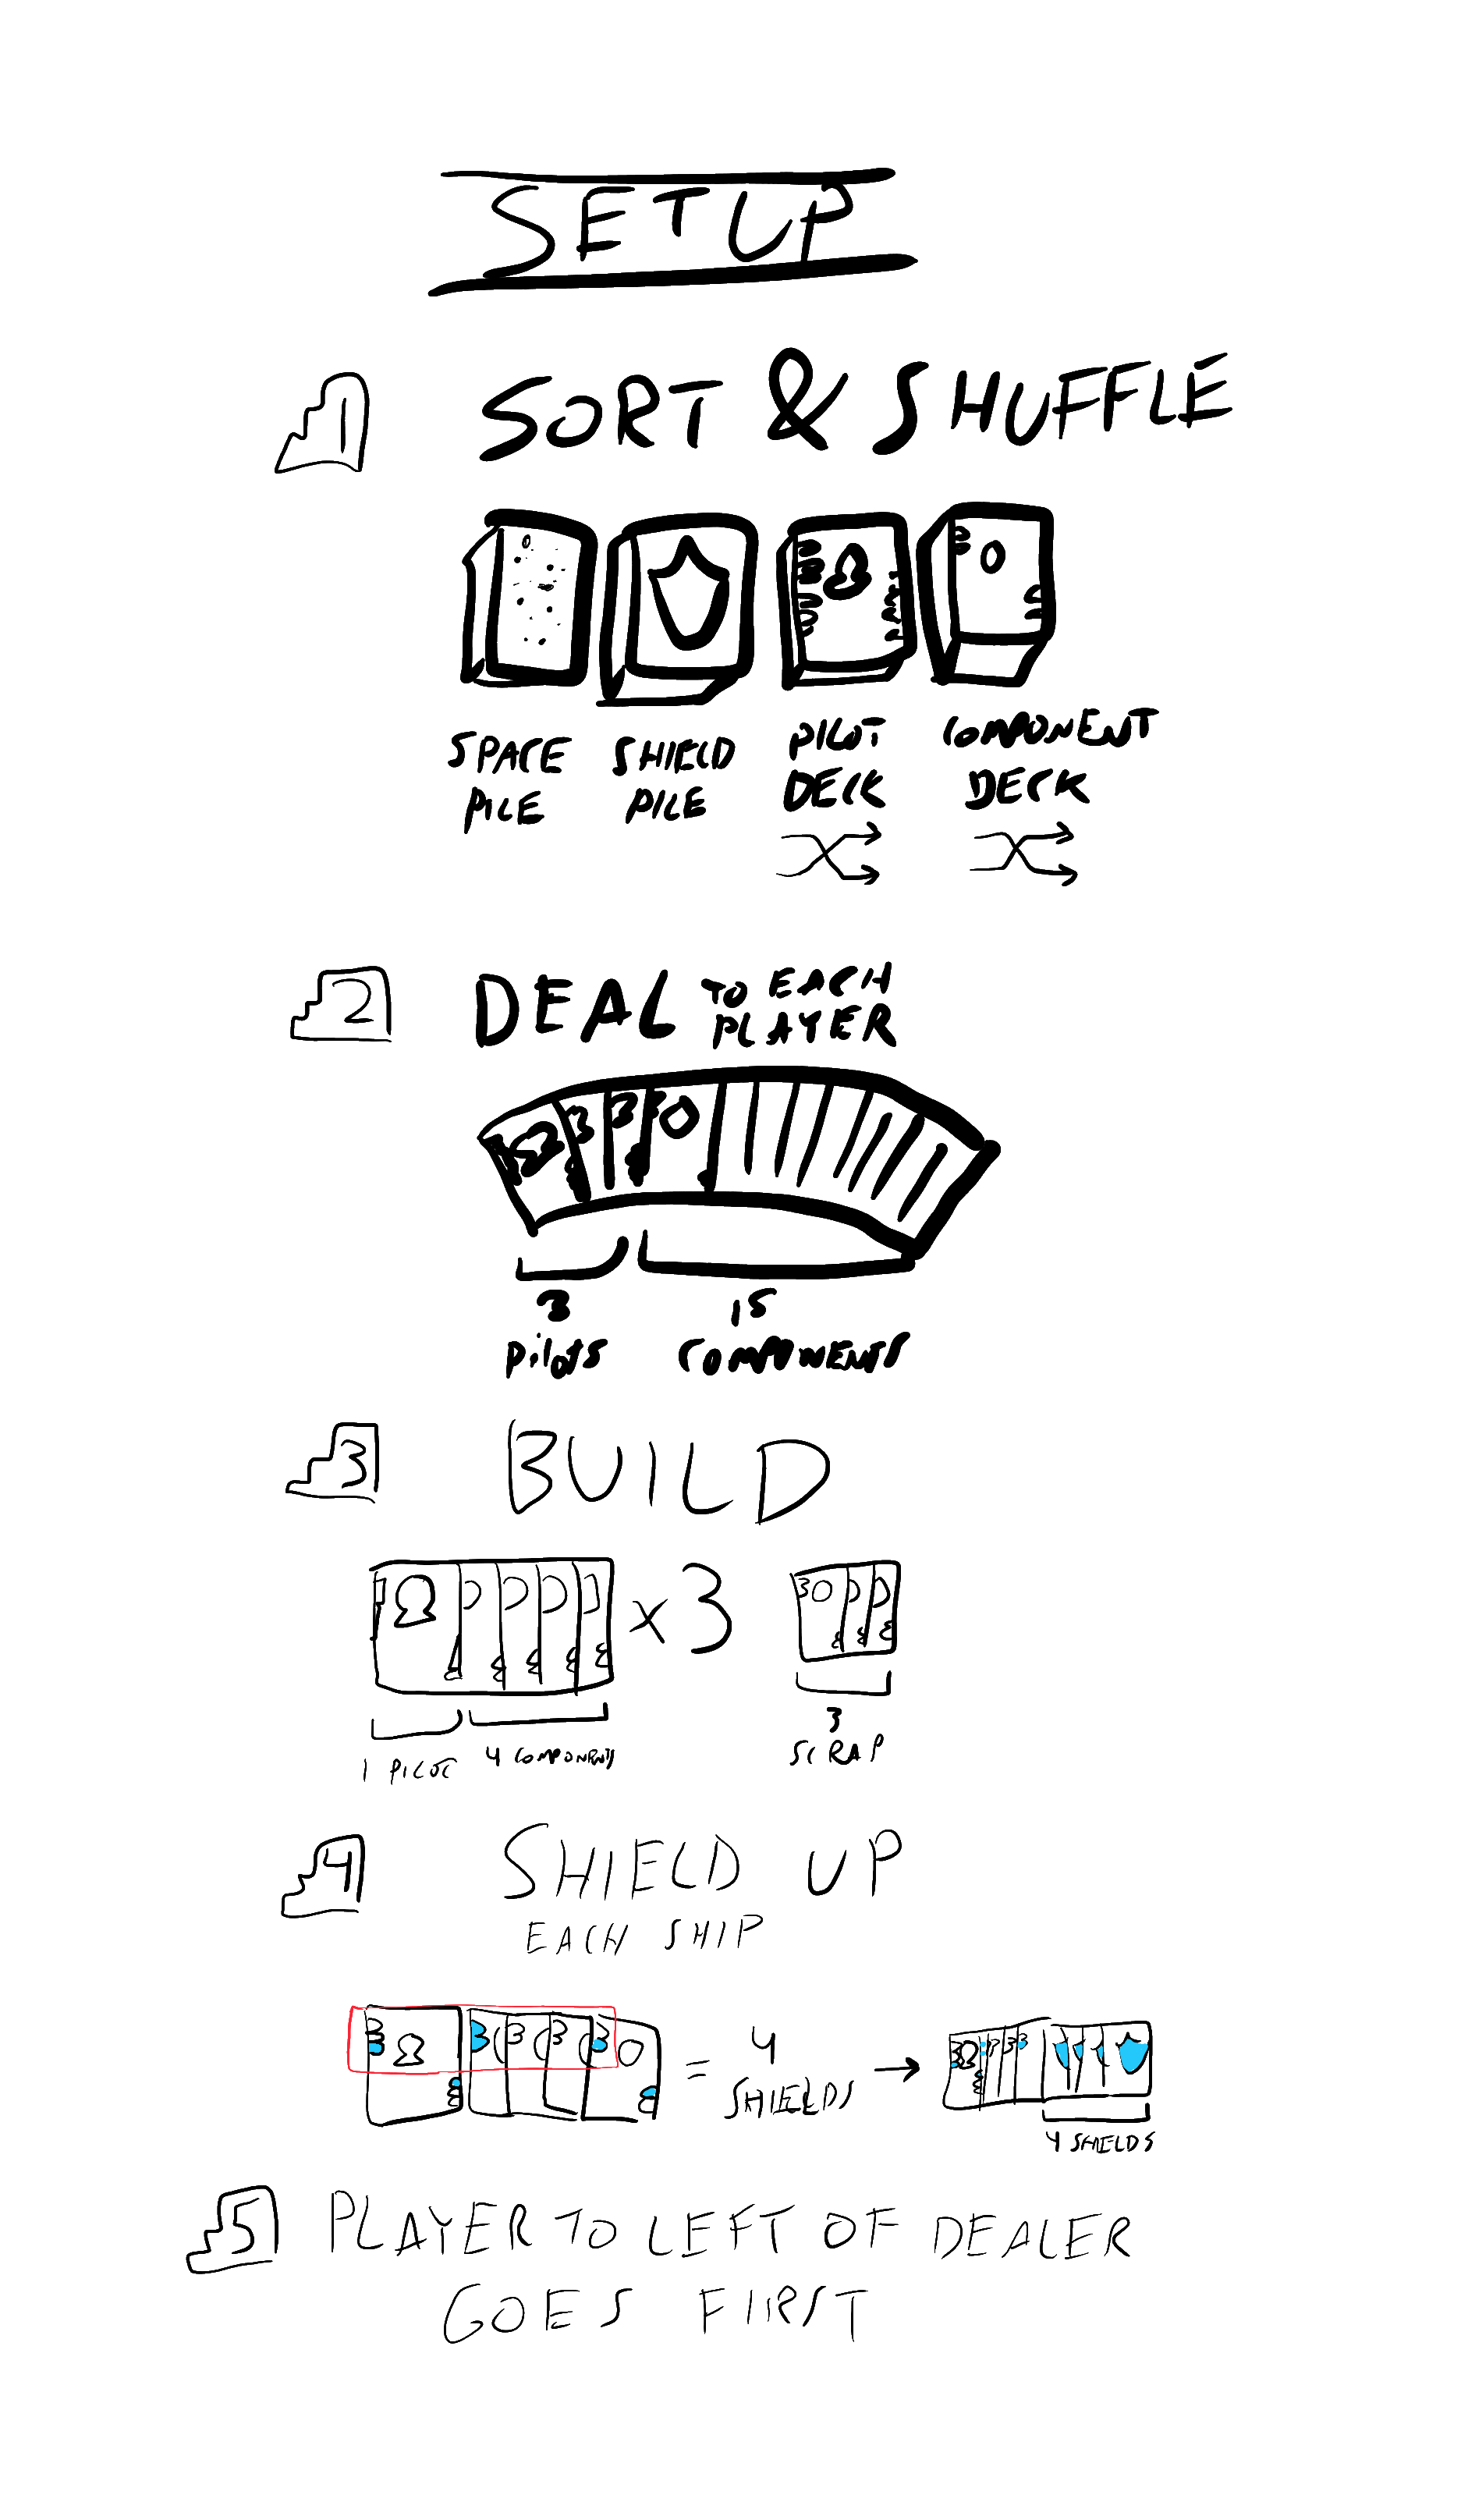 SETUP
1 SORT & SHUFFLE
SPACE PILE
SHIELD PILE
PILOT DECK
COMPONENT DECK
2 DEAL TO EACH PLAYER
3 Pilots
15 COMPONENTS
3 BUILD
x3
1 PILOT
4 COMPONENTS
3 SCRAP
4 SHIELD UP
EACH SHIP
= 4 SHIELDS →
4 SHIELDS
5 PLAYER TO LEFT OF DEALER
GOES FIRST